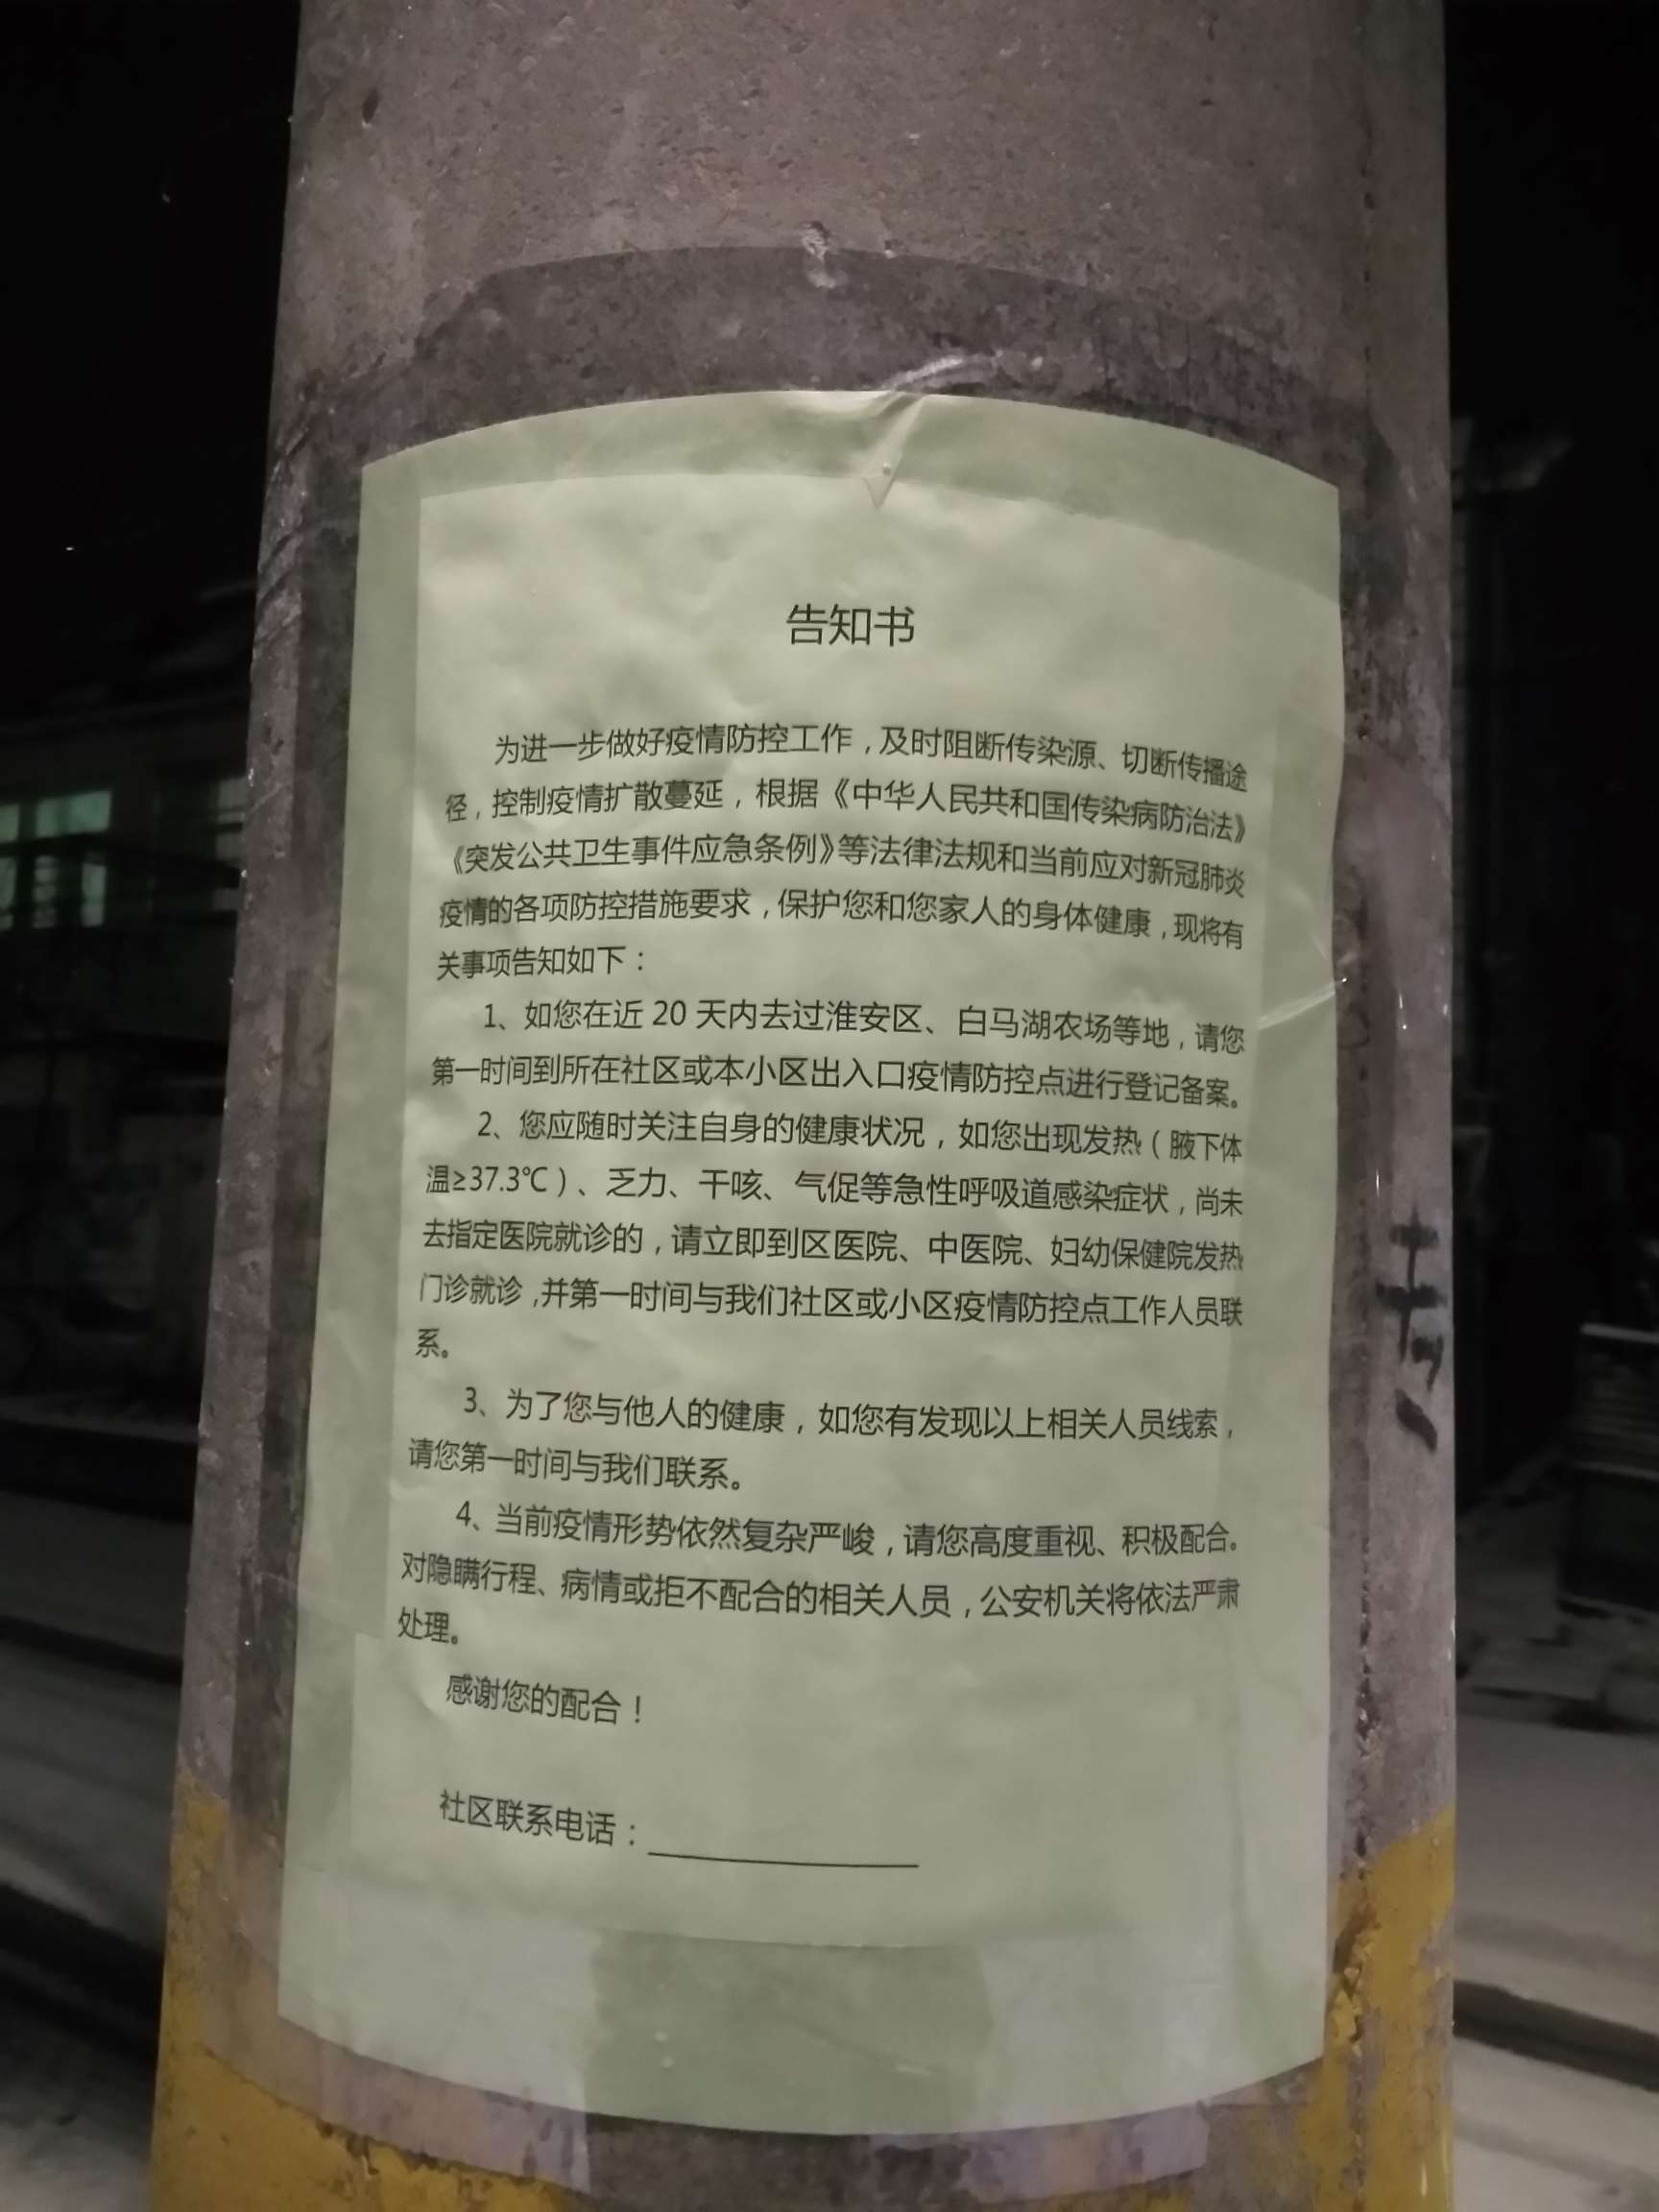 告知书
为进一步做好疫情防控工作，及时阻断传染源、切断传播途
径，控制疫情扩散蔓延，根据《中华人民共和国传染病防治法》
《突发公共卫生事件应急条例》等法律法规和当前应对新冠肺炎
疫情的各项防控措施要求，保护您和您家人的身体健康，现将有
关事项告知如下：
1、如您在近 20 天内去过淮安区、白马湖农场等地，请您
第一时间到所在社区或本小区出入口疫情防控点进行登记备案。
2、您应随时关注自身的健康状况，如您出现发热（腋下体
温≥37.3℃）、乏力、干咳、气促等急性呼吸道感染症状，尚未
去指定医院就诊的，请立即到区医院、中医院、妇幼保健院发热
门诊就诊，并第一时间与我们社区或小区疫情防控点工作人员联
系。
3、为了您与他人的健康，如您有发现以上相关人员线索，
请您第一时间与我们联系。
4、当前疫情形势依然复杂严峻，请您高度重视、积极配合。
对隐瞒行程、病情或拒不配合的相关人员，公安机关将依法严肃
处理。
感谢您的配合！
社区联系电话：